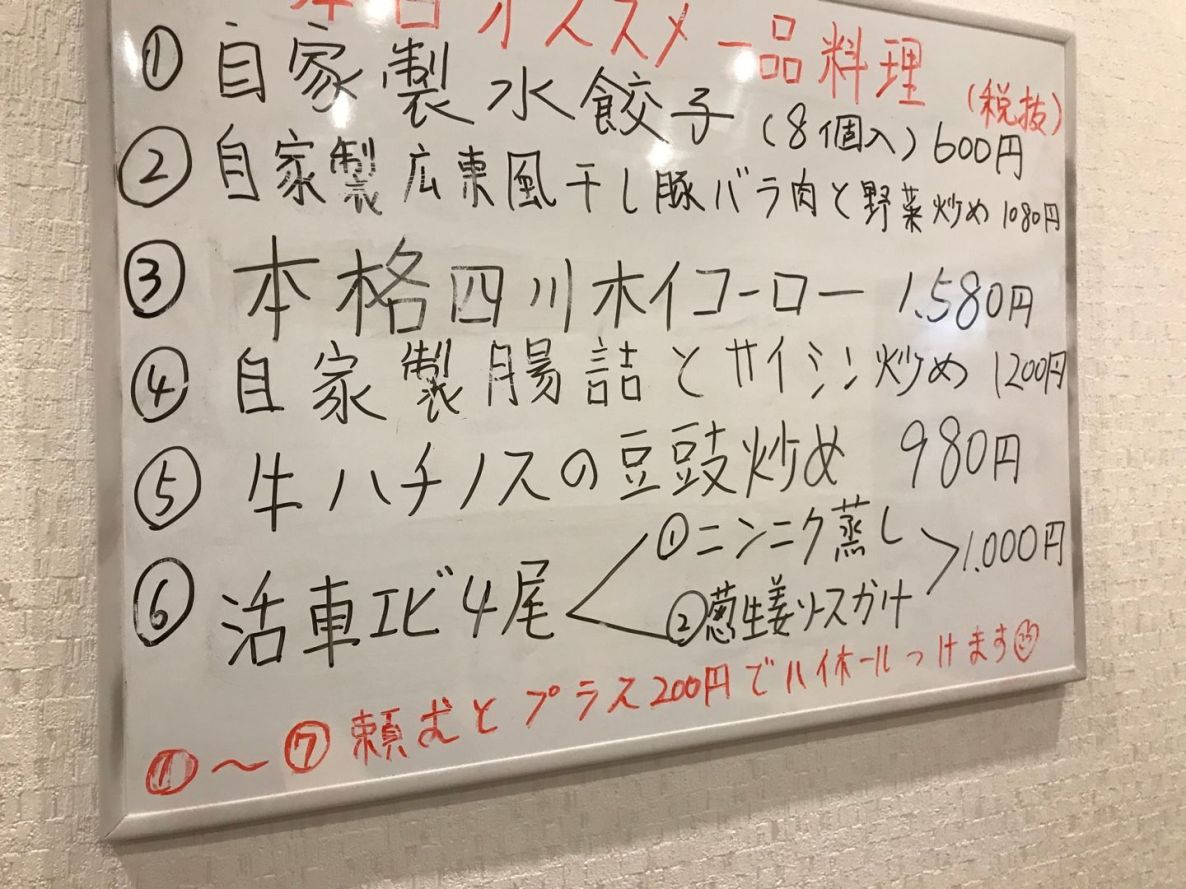 本日オススメ一品料理
(税抜)
① 自家製水餃子(8個入)600円
② 自家製広東風干し豚バラ肉と野菜炒め 1080円
③ 本格四川ホイコーロー 1.580円
④ 自家製腸詰とサイシン炒め 1200円
⑤ 牛ハチノスの豆豉炒め 980円
⑥ 活車エビ4尾 ①ニンニク蒸し 1.000円
②葱生姜ソースかけ
①〜⑦頼むとプラス200円でハイボールつけます